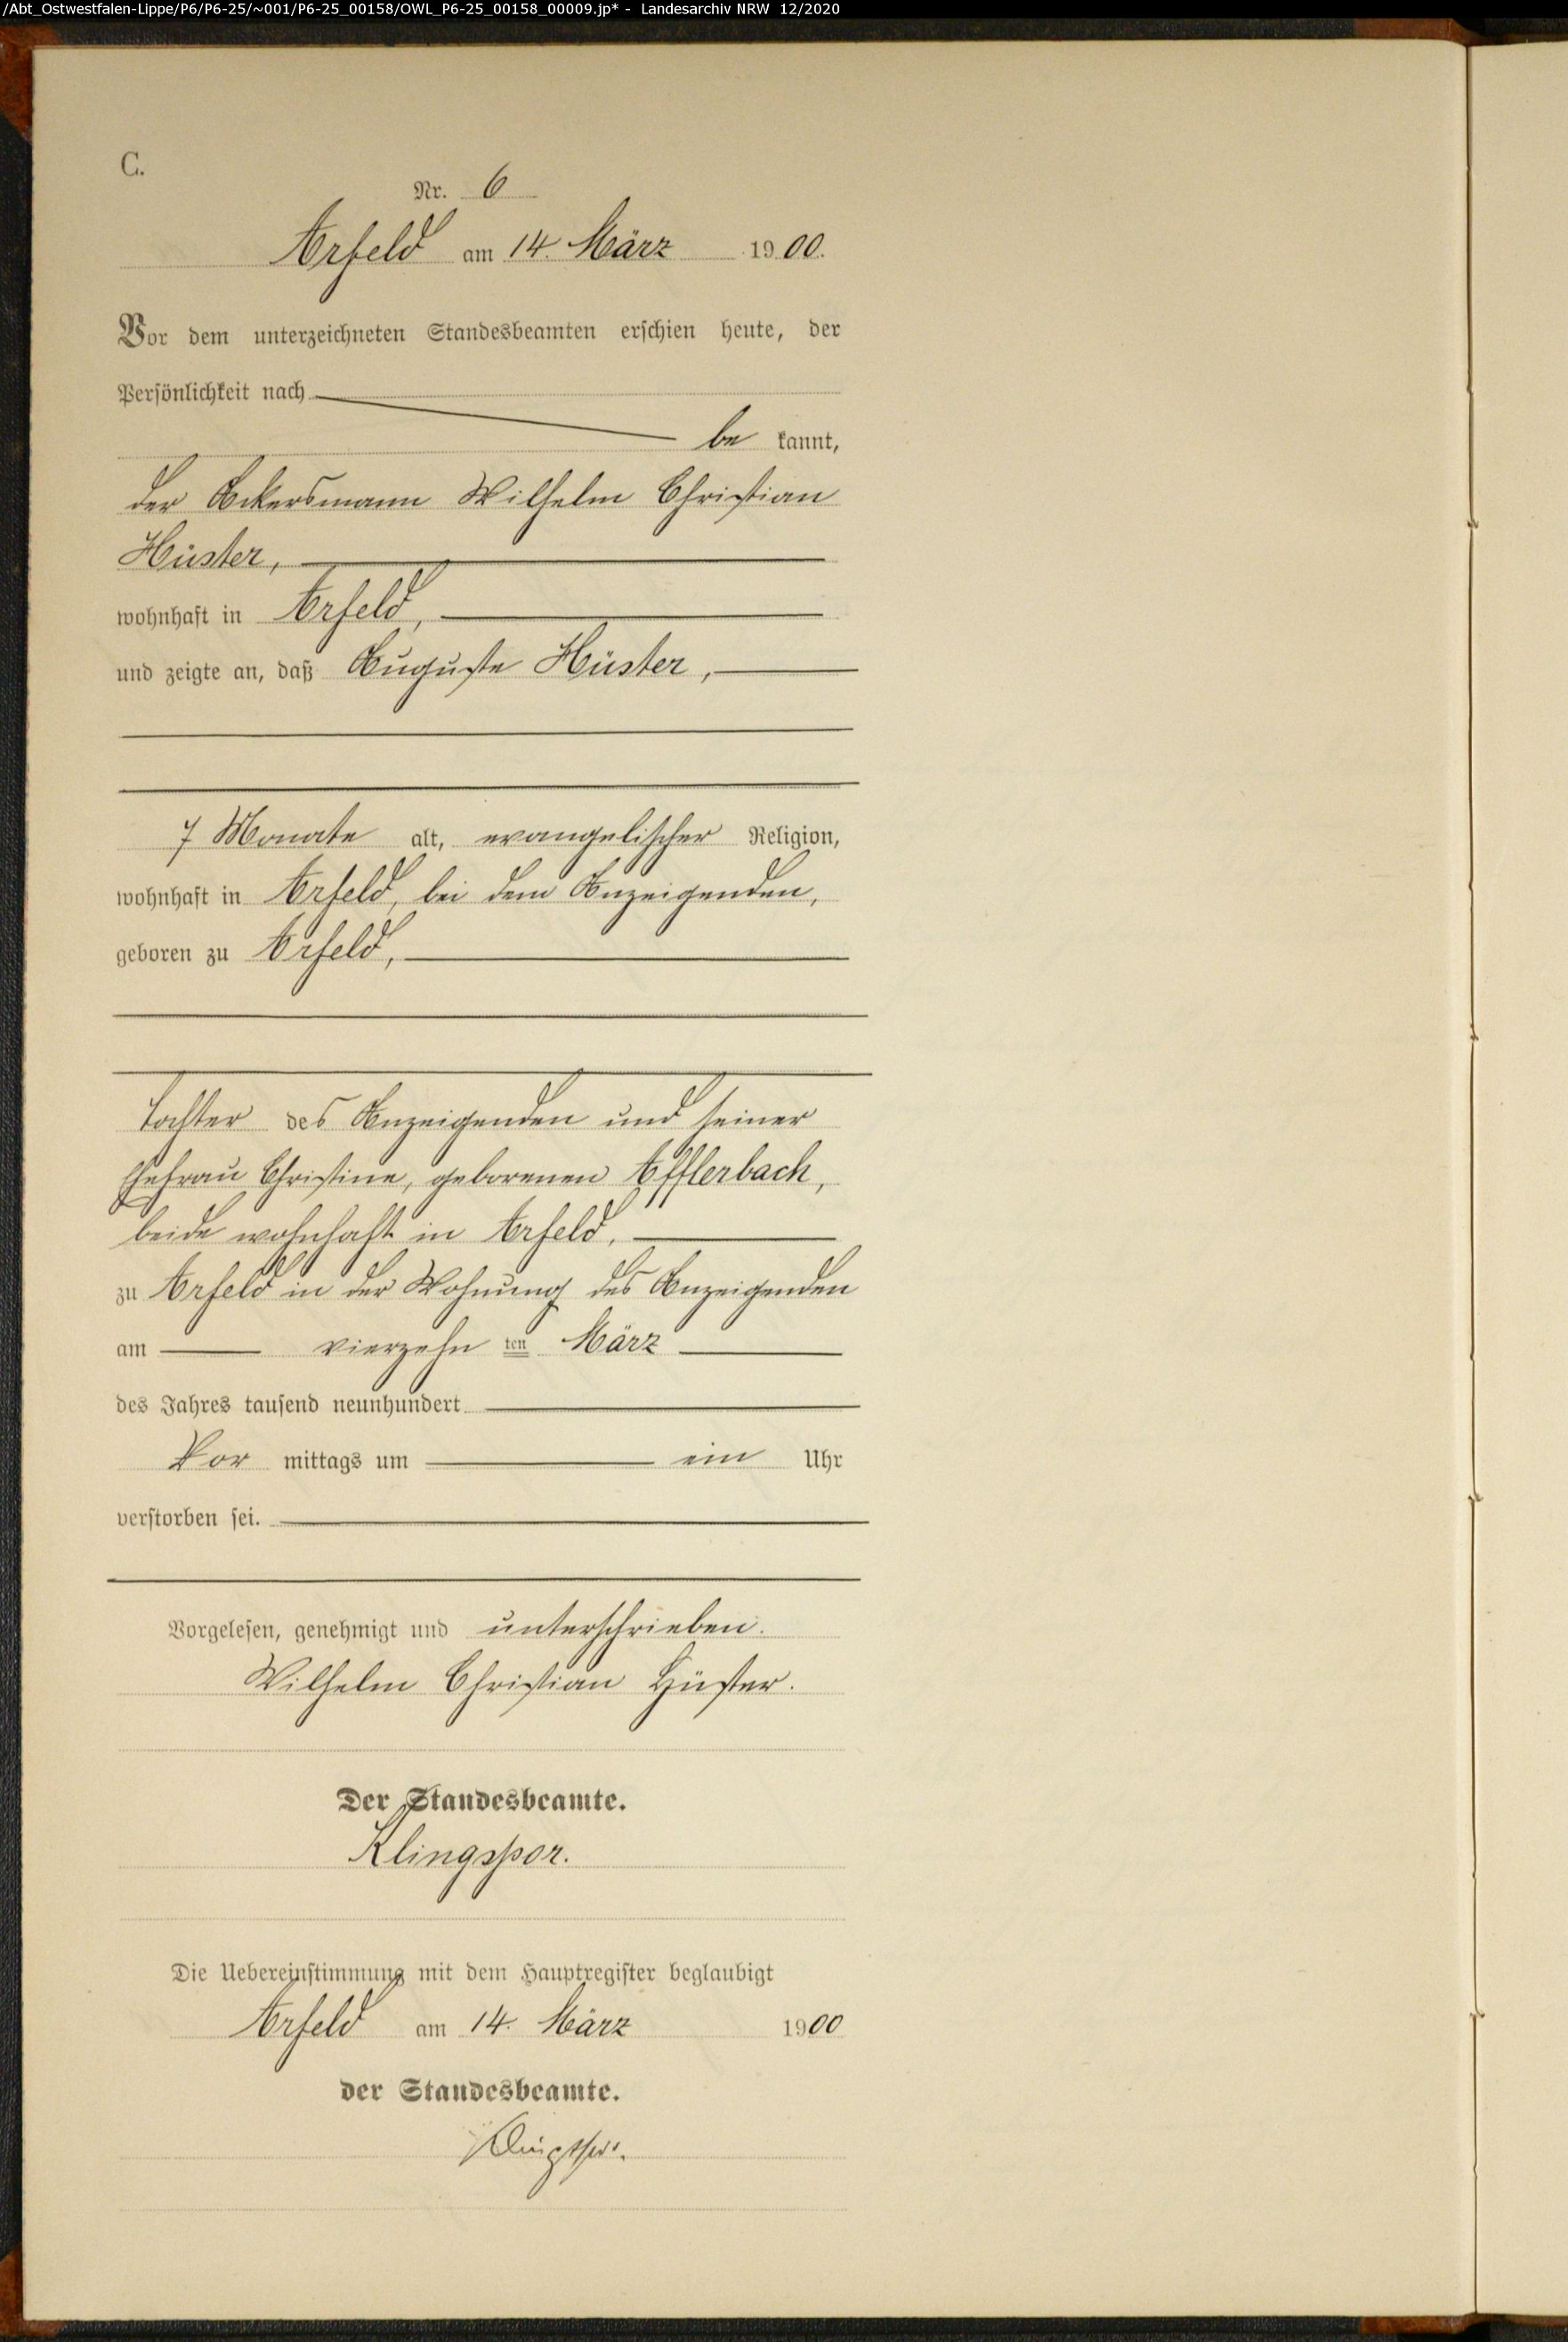 /Abt_Ostwestfalen-Lippe/P6/P6-25/~001/P6-25_00158/OWL_P6-25_00158_00009.jp* - Landesarchiv NRW 12/2020
C.
Nr. 6
Arfeld am 14. März 1900.
Vor dem unterzeichneten Standesbeamten erschien heute, der
Persönlichkeit nach
be kannt,
der Ackersmann Wilhelm Christian
Hüster,
wohnhaft in Arfeld,
und zeigte an, daß Auguste Hüster,
7 Monate alt, evangelischer Religion,
wohnhaft in Arfeld, bei dem Anzeigenden,
geboren zu Arfeld,
Tochter des Anzeigenden und seiner
Ehefrau Christine, geborenen Afflerbach,
beide wohnhaft in Arfeld,
zu Arfeld in der Wohnung des Anzeigenden
am vierzehn ten März
des Jahres tausend neunhundert
Vor mittags um ein Uhr
verstorben sei.
Vorgelesen, genehmigt und unterschrieben.
Wilhelm Christian Hüster.
Der Standesbeamte.
Klingspor.
Die Uebereinstimmung mit dem Hauptregister beglaubigt
Arfeld am 14. März 1900
der Standesbeamte.
Klingspor.